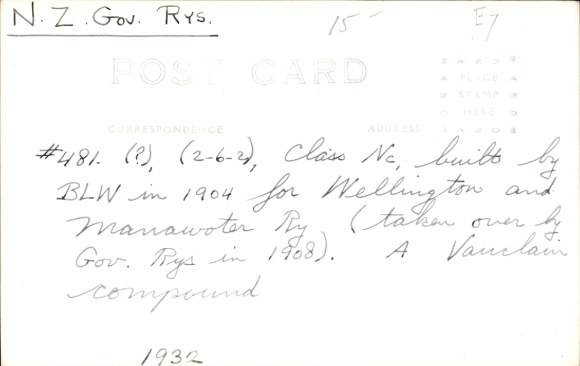 N. Z. Gov. Rys.
15-
E7
POST CARD
AZO
PLACE
STAMP
HERE
AZO
CORRESPONDENCE
ADDRESS
#481- (?), (2-6-2), Class Nc, built by
BLW in 1904 for Wellington and
Manawoter Ry (taken over by
Gov. Rys in 1908). A Vauclain
compound
1932